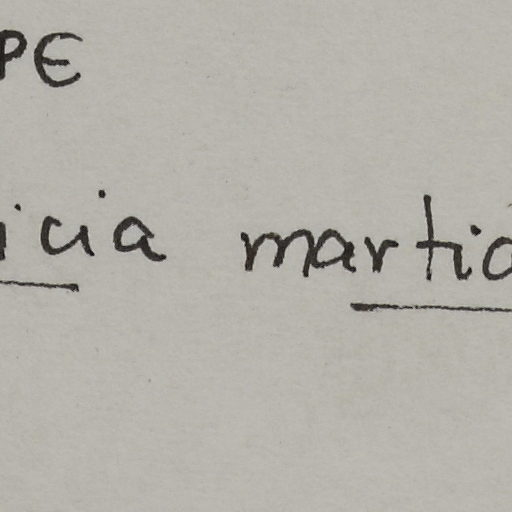 PE
icia martia